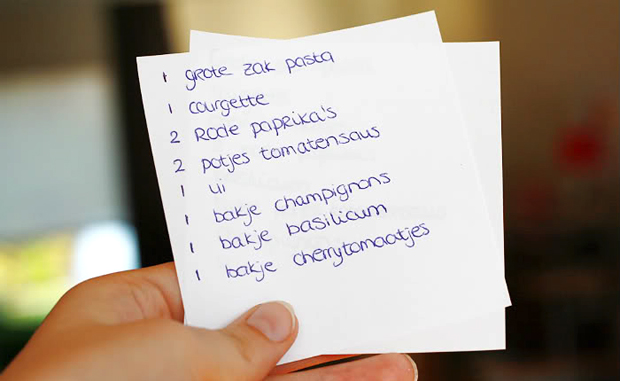 1 grote zak pasta
1 courgette
2 Rode paprika's
2 potjes tomatensaus
1 ui
1 bakje champignons
1 bakje basilicum
1 bakje cherrytomaatjes